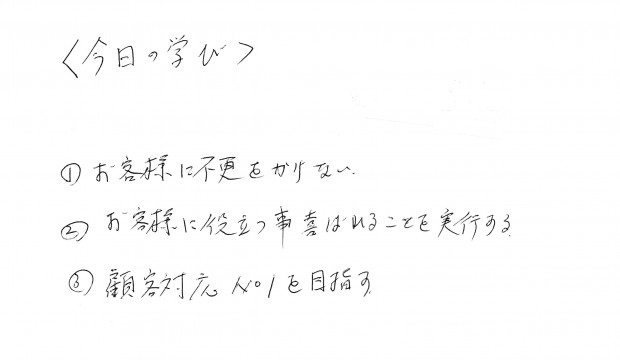 <今日の学び>
① お客様に不更をかけない.
② お客様に役立つ事喜ばれることを実行する.
③ 顧客対応 No1を目指す.